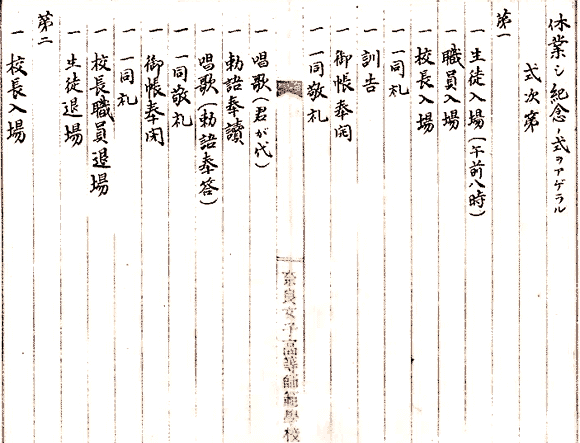 休業シ紀念ノ式ヲアゲラル
式次第
第一
一 生徒入場(午前八時)
一 職員入場
一 校長入場
一 一同礼
一 訓告
一 御帳奉開
一 一同敬礼
奈良女子高等師範學校
一 唱歌(君が代)
一 勅語奉讀
一 唱歌(勅語奉答)
一 一同敬礼
一 御帳奉閉
一 一同礼
一 校長職員退場
一 生徒退場
第二
一 校長入場